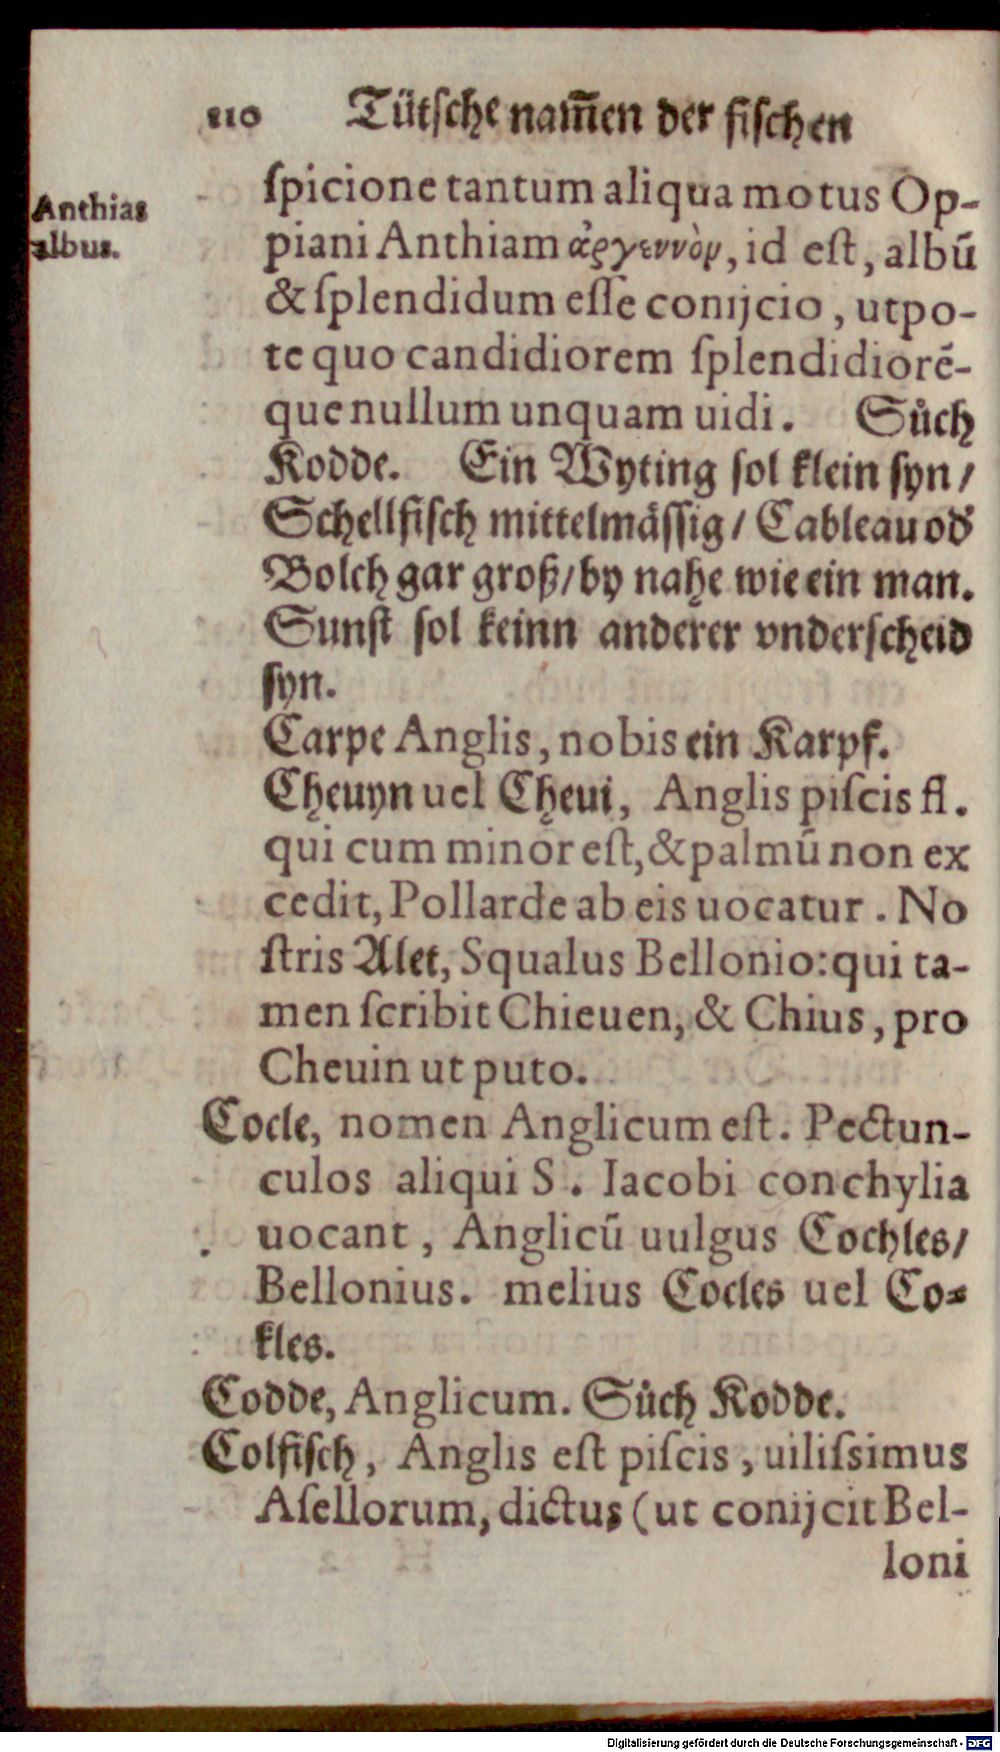 110 Tütsche nam̃en der fischen
ſpicione tantum aliqua motus Op-
Anthias
piani Anthiam ἀργεννὸν, id eſt, albũ
albus.
& ſplendidum eſſe conijcio, utpo-
te quo candidiorem ſplendidiorẽ-
que nullum unquam uidi. Sůch
Kodde. Ein Wyting sol klein syn/
Schellfisch mittelmässig/ Cableau od'
Bolch gar groß/ by nahe wie ein man.
Sunst sol keinn anderer vnderscheid
syn.
Carpe Anglis, nobis ein Karpf.
Cheuyn uel Cheui, Anglis piſcis fl.
qui cum minor eſt, & palmũ non ex
cedit, Pollarde ab eis uocatur. No
ſtris Alet, Squalus Bellonio: qui ta-
men ſcribit Chieuen, & Chius, pro
Cheuin ut puto.
Cocle, nomen Anglicum eſt. Pectun-
culos aliqui S. Iacobi conchylia
uocant, Anglicũ uulgus Cochles/
Bellonius. melius Cocles uel Co-
kles.
Codde, Anglicum. Sůch Kodde.
Colfisch, Anglis eſt piſcis, uiliſsimus
Aſellorum, dictus (ut conijcit Bel-
loni
Digitalisierung gefördert durch die Deutsche Forschungsgemeinschaft - DFG